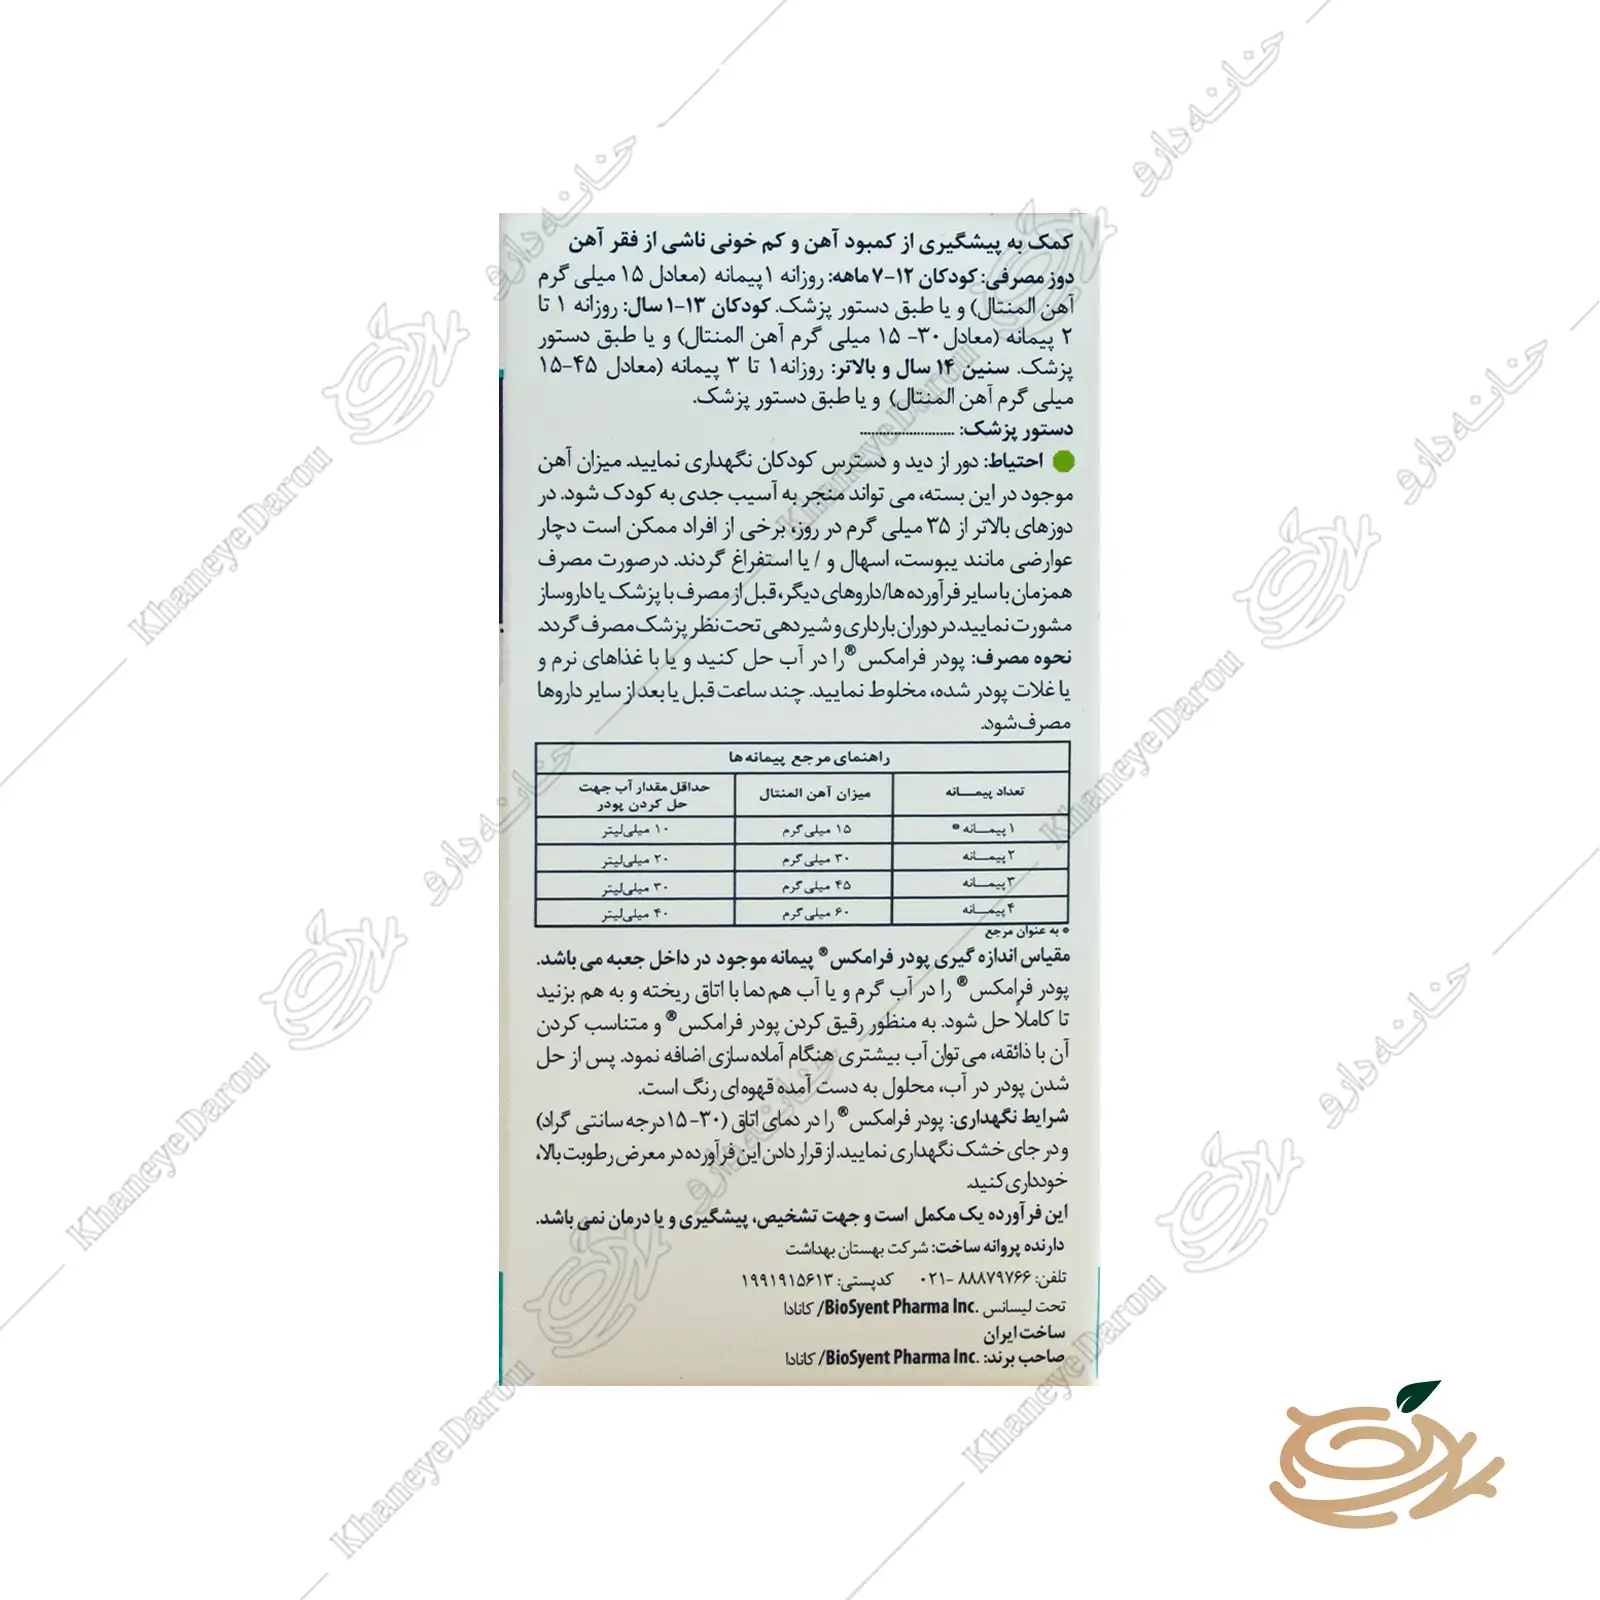 کمک به پیشگیری از کمبود آهن و کم خونی ناشی از فقر آهن
دوز مصرفی: کودکان ۱۲-۷ ماهه: روزانه ۱ پیمانه (معادل ۱۵ میلی گرم
آهن المنتال) و یا طبق دستور پزشک. کودکان ۱۳-۱ سال: روزانه ۱ تا
۲ پیمانه (معادل ۳۰- ۱۵ میلی گرم آهن المنتال) و یا طبق دستور
پزشک. سنین ۱۴ سال و بالاتر: روزانه ۱ تا ۳ پیمانه (معادل ۴۵-۱۵
میلی گرم آهن المنتال) و یا طبق دستور پزشک.
دستور پزشک: ........................
احتیاط: دور از دید و دسترس کودکان نگهداری نمایید. میزان آهن
موجود در این بسته، می تواند منجر به آسیب جدی به کودک شود. در
دوزهای بالاتر از ۳۵ میلی گرم در روز، برخی از افراد ممکن است دچار
عوارضی مانند یبوست، اسهال و / یا استفراغ گردند. درصورت مصرف
همزمان با سایر فرآورده ها/داروهای دیگر، قبل از مصرف با پزشک یا داروساز
مشورت نمایید. در دوران بارداری و شیردهی تحت نظر پزشک مصرف گردد.
نحوه مصرف: پودر فرامکس® را در آب حل کنید و یا با غذاهای نرم و
یا غلات پودر شده، مخلوط نمایید. چند ساعت قبل یا بعد از سایر داروها
مصرف شود.
راهنمای مرجع پیمانه ها
تعداد پیمـــانه میزان آهن المنتال حداقل مقدار آب جهت
حل کردن پودر
۱ پیمـــانه * ۱۵ میلی گرم ۱۰ میلی‌لیتر
۲ پیمـــانه ۳۰ میلی گرم ۲۰ میلی‌لیتر
۳ پیمـــانه ۴۵ میلی گرم ۳۰ میلی‌لیتر
۴ پیمـــانه ۶۰ میلی گرم ۴۰ میلی‌لیتر
* به عنوان مرجع
مقیاس اندازه گیری پودر فرامکس® پیمانه موجود در داخل جعبه می باشد.
پودر فرامکس® را در آب گرم و یا آب هم دما با اتاق ریخته و به هم بزنید
تا کاملاً حل شود. به منظور رقیق کردن پودر فرامکس® و متناسب کردن
آن با ذائقه، می توان آب بیشتری هنگام آماده سازی اضافه نمود. پس از حل
شدن پودر در آب، محلول به دست آمده قهوه ای رنگ است.
شرایط نگهداری: پودر فرامکس® را در دمای اتاق (۳۰-۱۵ درجه سانتی گراد)
و در جای خشک نگهداری نمایید. از قرار دادن این فرآورده در معرض رطوبت بالا،
خودداری کنید.
این فرآورده یک مکمل است و جهت تشخیص، پیشگیری و یا درمان نمی باشد.
دارنده پروانه ساخت: شرکت بهستان بهداشت
تلفن: ۸۸۸۷۹۷۶۶ -۰۲۱ کدپستی: ۱۹۹۱۹۱۵۶۱۳
تحت لیسانس BioSyent Pharma Inc. /کانادا
ساخت ایران
صاحب برند: BioSyent Pharma Inc. /کانادا
خانه دارو
KhaneyeDarou